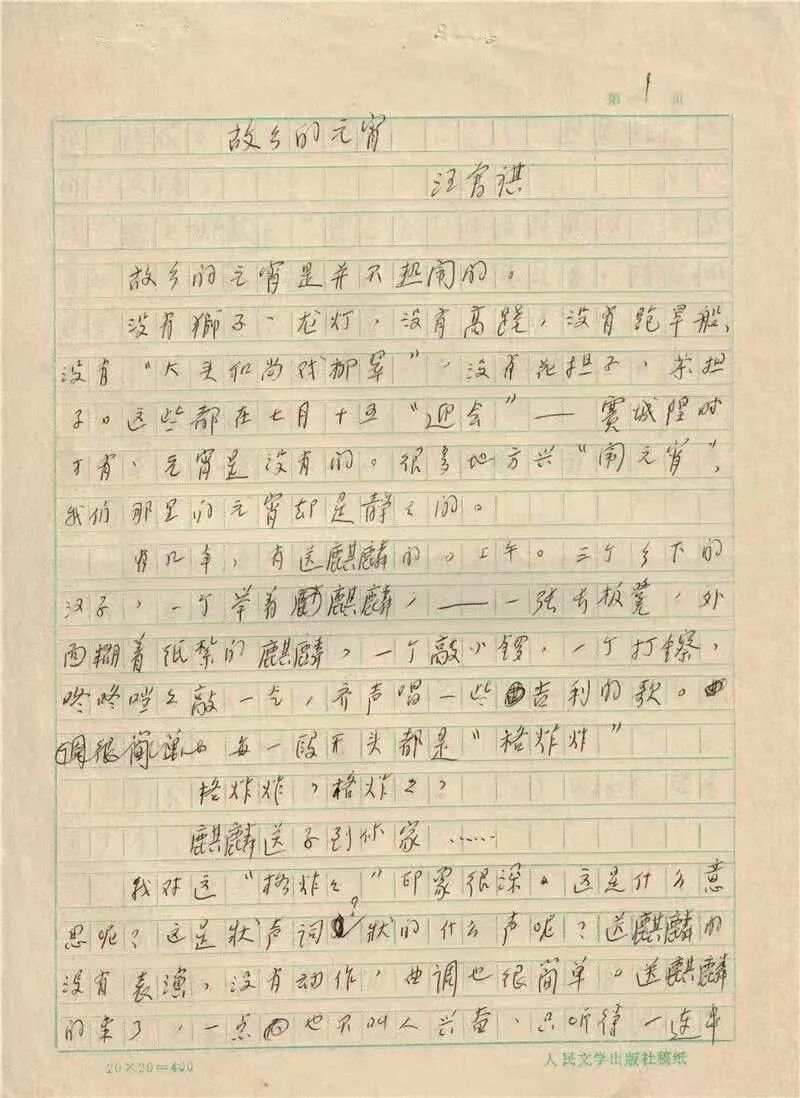 第 1 页
故乡的元宵
汪曾祺
故乡的元宵是并不热闹的。
没有狮子、龙灯,没有高跷,没有跑旱船,
没有“大头和尚戏柳翠”,没有花担子、茶担
子。这些都在七月十五“迎会”——赛城隍时
才有,元宵是没有的。很多地方兴“闹元宵”,
我们那里的元宵却是静々的。
有几年,有送麒麟的。上午。三个乡下的
汉子,一个举着麒麟,——一张长板凳,外
面糊着纸扎的麒麟,一个敲小锣,一个打镲,
咚咚哐々敲一气,齐声唱一些吉利的歌。曲
调很简单。每一段开头都是“格炸炸”
格炸炸,格炸々,
麒麟送子到你家……
我对这“格炸々”印象很深。这是什么意
思呢?这是状声词?状的什么声呢?送麒麟的
没有表演,没有动作,曲调也很简单。送麒麟
的来了,一点也不叫人兴奋,只听得一连串
20×20=400
人民文学出版社稿纸